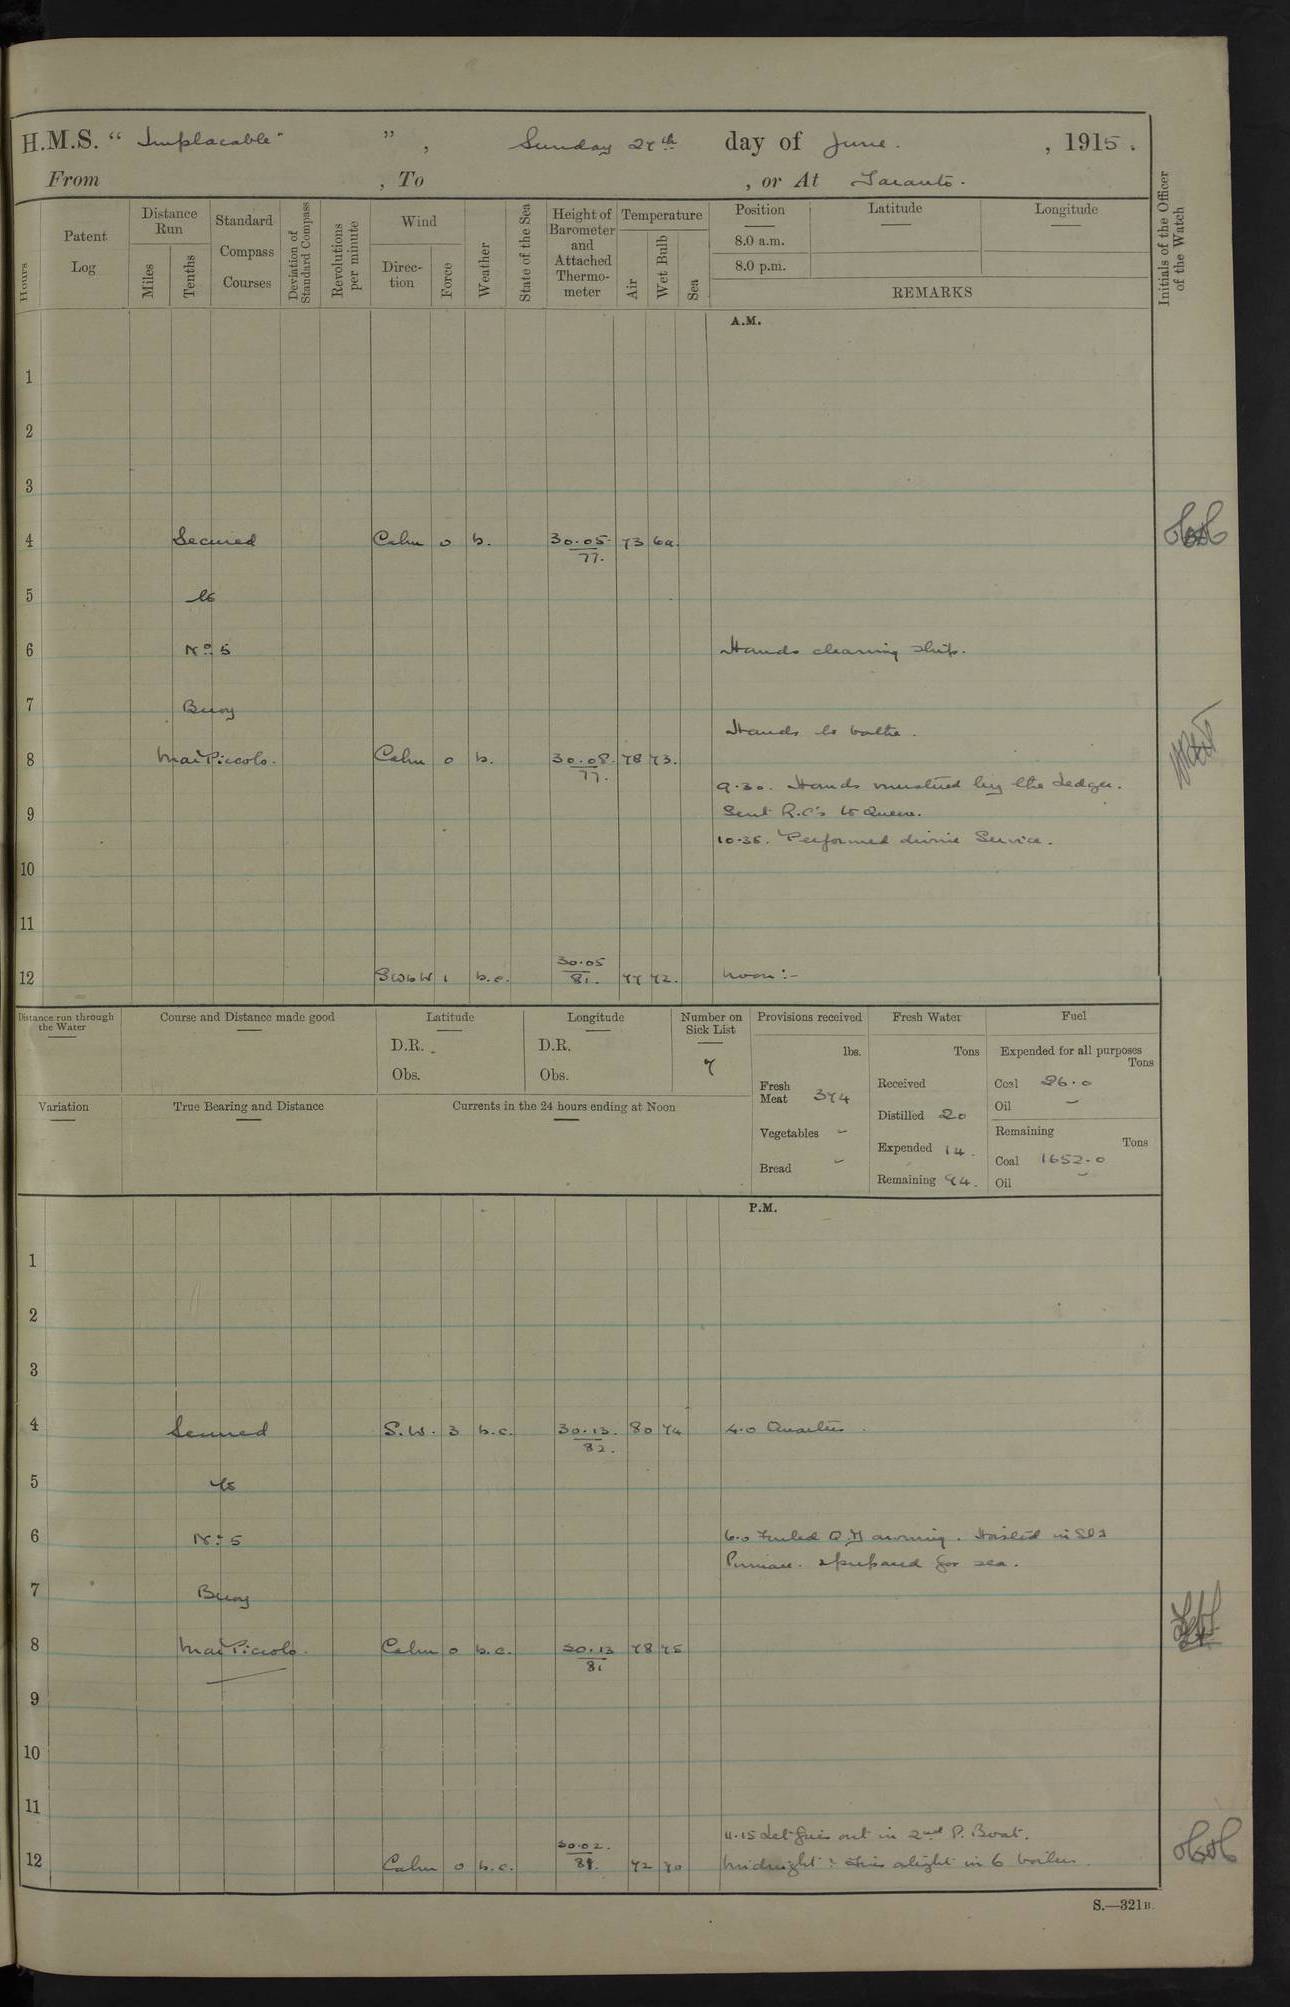 H.M.S. " Implacable " , Sunday 27th day of June. , 1915.
From , To , or At Taranto.
Hours
Patent Log
Distance Run
Miles
Tenths
Standard Compass Courses
Deviation of Standard Compass
Revolutions per minute
Wind
Direction
Force
Weather
State of the Sea
Height of Barometer and Attached Thermometer
Temperature
Air
Wet Bulb
Sea
Position
8.0 a.m.
8.0 p.m.
Latitude
Longitude
REMARKS
Initials of the Officer of the Watch
A.M.
1
2
3
4 Secured Calm 0 b. 30.05 77. 73 69.
5 to
6 No. 5 Hands cleaning ship.
7 Buoy
Hands to bathe.
8 Mar Piccolo. Calm 0 b. 30.08. 77. 78 73.
9.30. Hands mustered by the Ledger.
9 Sent R.C's to Queen.
10.35. Performed divine Service.
10
11
12 SWbW 1 b.c. 30.05 81. 77 72. Noon :-
Distance run through the Water
Course and Distance made good
Latitude
D.R.
Obs.
Longitude
D.R.
Obs.
Number on Sick List
7
Provisions received
lbs.
Fresh Meat 374
Vegetables -
Bread -
Fresh Water
Tons
Received
Distilled 20
Expended 14.
Remaining 94.
Fuel
Expended for all purposes
Tons
Coal 26.0
Oil -
Remaining
Tons
Coal 1652.0
Oil -
Variation
True Bearing and Distance
Currents in the 24 hours ending at Noon
P.M.
1
2
3
4 Secured S.W. 3 b.c. 30.13. 82. 80 74 4.0 Quarters.
5 to
6 No. 5 6.0 Furled Q.D awning. Hoisted in Sl &
Pinnace. & prepared for sea.
7 Buoy
8 Mar Piccolo. Calm 0 b.c. 30.13 81 78 75
9
10
11
11.15 Let fires out in 2nd P. Boat.
12 Calm 0 b.c. 30.02. 81. 72 70 Midnight: Fires alight in 6 boilers
S.—321B.